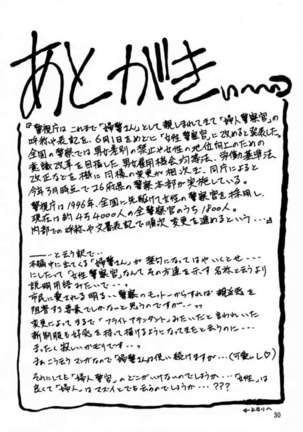 あとがきぃ〜〜っ
『警視庁は これまで「婦警さん」として 親しまれてきて「婦人警察官」の
呼称や表記を、6月1日をめどに「女性警察官」に改めると発表した。
全国の警察では 男女差別の禁止や女性の地位向上のための
意識改革を目指した 男女雇用機会均等法、労働基準法
改正などを機に 同様の変更が相次ぎ、同庁によると
今年3月時点で26府県の警察本部が実施している。
警視庁は1946年、全国に先駆けて女性の警察官を採用し、
現在は約4万4000人の全警察官のうち1800人。
内部での呼称や文書表記で順次変更を進めるという…』
―――と言う訳で…
本編中に出てくる「婦警さん」が
にしたって「女性警察官」なんて その方達を示す名称と言うより
説明用語みたいで…。
市民に愛される明るい警察のモットーからすれば 親近感を
阻害する要素でしかないと思うのですが…。
変更によって まるで「フライトアタッチメント」みたいだと言われていた
新制服も好感を持って描けるようになってきたと余りに…
まったく寂しいかぎりです…。
まぁこう言うマンガなので「婦警さん」は使い続けますが…(可愛いし♡)
それにしても「婦人警官」のどこがいけないのでしょうか…「女性」は
良くて「婦人」はマズイとでも言うのでしょうか…???
30